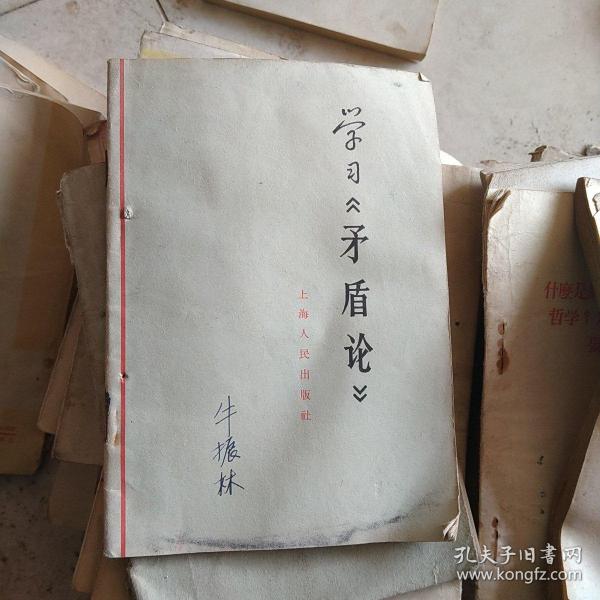 学习《矛盾论》
上海人民出版社
牛振林
什麽是
哲学?
孔夫子旧書网
www.kongfz.com